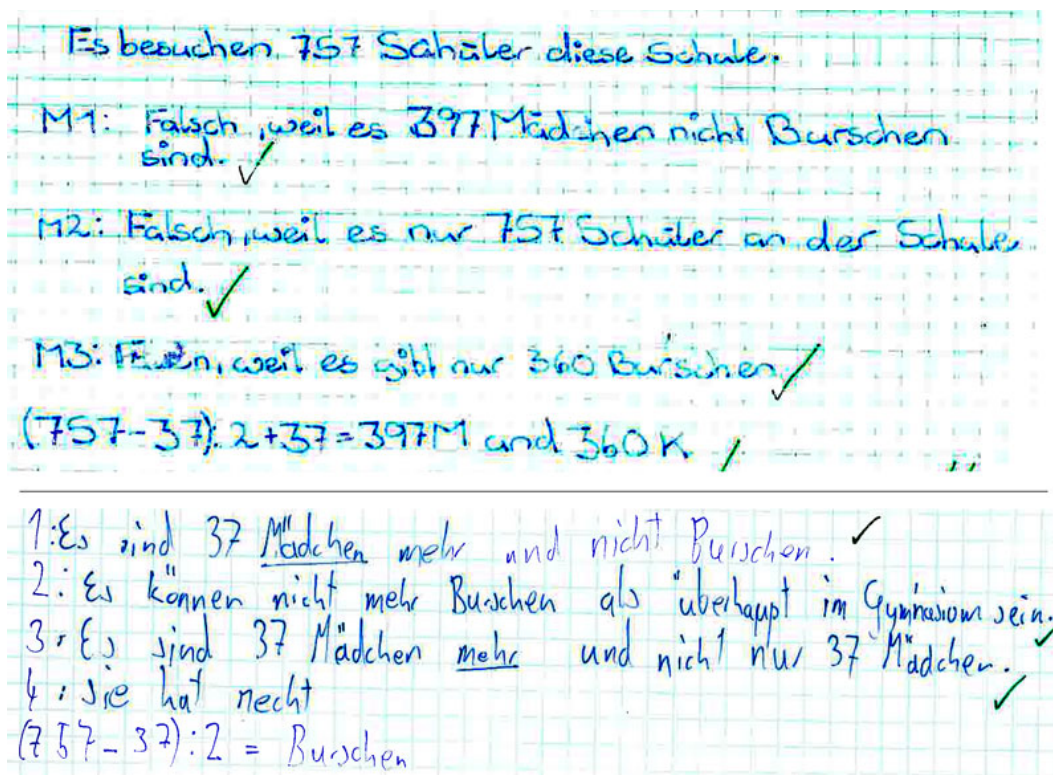 Es besuchen 757 Schüler diese Schule.
M1: Falsch, weil es 397 Mädchen nicht Burschen
sind.
M2: Falsch, weil es nur 757 Schüler an der Schule
sind.
M3: weil es gibt nur 360 Burschen
(757-37):2+37=397M und 360K
1: Es sind 37 Mädchen mehr und nicht Burschen.
2: Es können nicht mehr Burschen als überhaupt im Gymnasium sein.
3: Es sind 37 Mädchen mehr und nicht nur 37 Mädchen.
4: Sie hat recht
(757-37):2 = Burschen